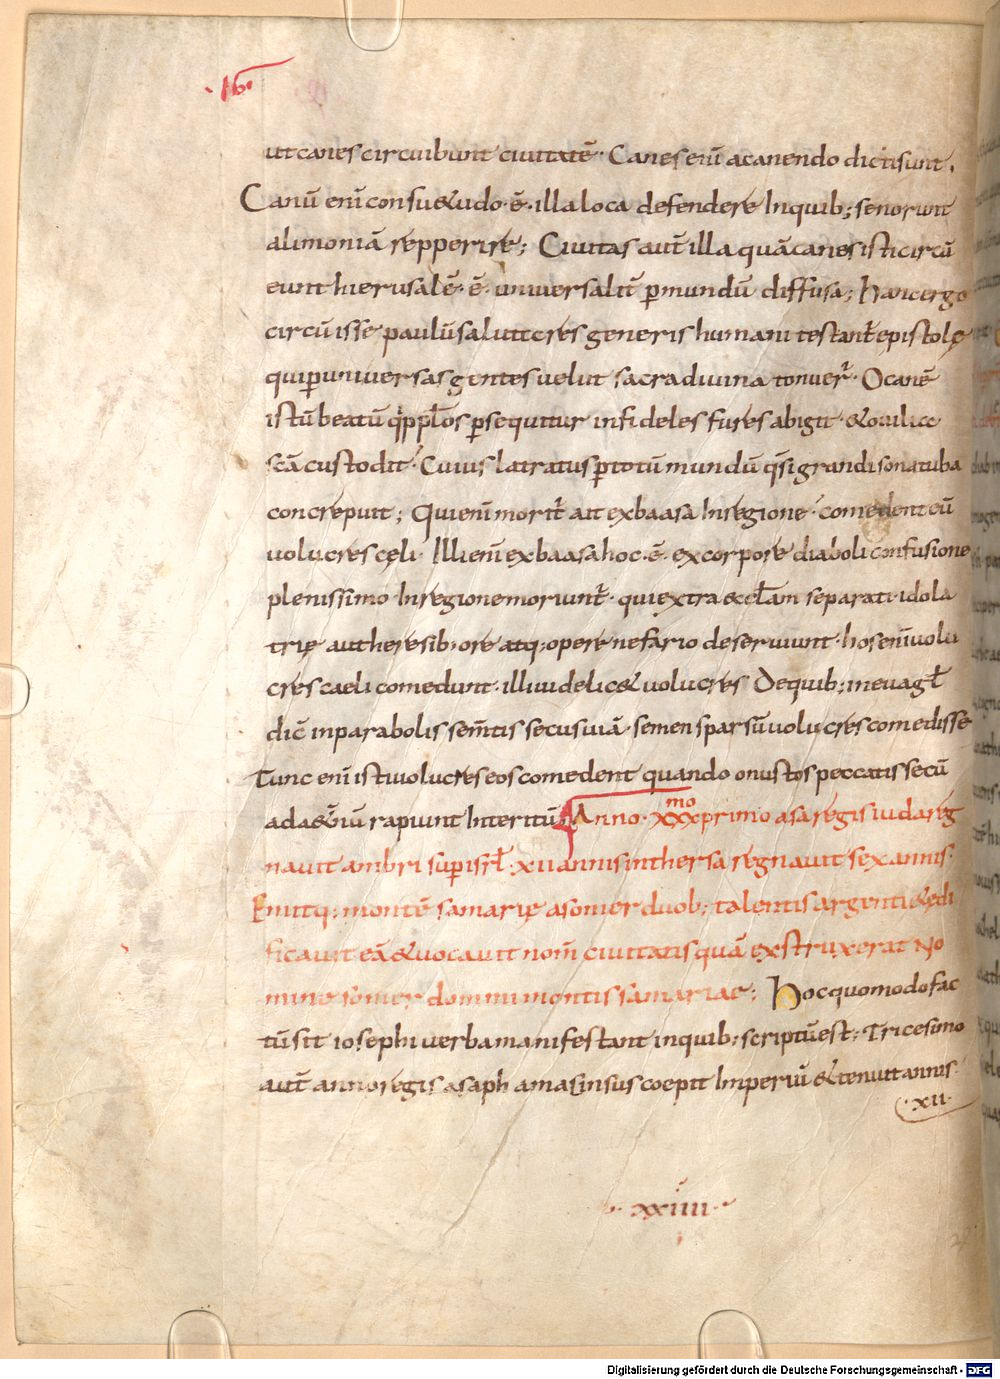 ·16·
ut canes circuibunt ciuitatē· Canes enī a canendo dicti sunt.
Canū enī consu&udo·ē· illa loca defendere Inquib; se norunt
alimoniā repperire; Ciuitas aut̄ illa quā canes isti circū
eunt hierusalē·ē· uniuersalit̄ p mundū diffusa; Hanc ergo
circūisse paulū saluatores generis humani testant̄ epistolę
qui puniuersas gentes uelut sacra diuina tonuer̄· O canē
istū beatū psequitur infideles fures abigit· &ouilia
scā custodit· Cuius latratus ptotū mundū q̄si grandisona tuba
concreput; Qui enī morit̄ ait exbaasa Inregione· comedent eū
uolucres cęli· Illi enī exbaasa hoc·ē· excorpore diaboli confusione
plenissimo· Inregione moriunt̄· qui extra eccłam separati· idola
trię aut heresib; ore atq; opere nefario deseruiunt· hos enī uolu
cres caeli comedunt· illi uidelic& uolucres De quib; in euagł
dic̄ in parabolis sem̄tis secus uiā· semen sparsū uolucres comedisse
Tunc enī isti uolucres eos comedent quando onustos peccatis secū
ad a&n̄ū rapiunt Interitū; Anno· xxx primo asa regis iuda reg
mo
nauit ambri sup isrł· xii annis in thersa regnauit sex annis·
Emitq; montē samarię a somer duob; talentis argenti &ędi
ficauit eā &uocauit nom̄ ciuitatis quā exstruxerat No
mine somer domini montis samariae; Hoc quomodo fac
tū sit iosephi uerba manifestant in quib; scriptū est; Tricesimo
aut̄ anno regis asaph amasinsus coepit Imperiū &tenuit annis·
·xii·
··xxiiii··
Digitalisierung gefördert durch die Deutsche Forschungsgemeinschaft - DFG